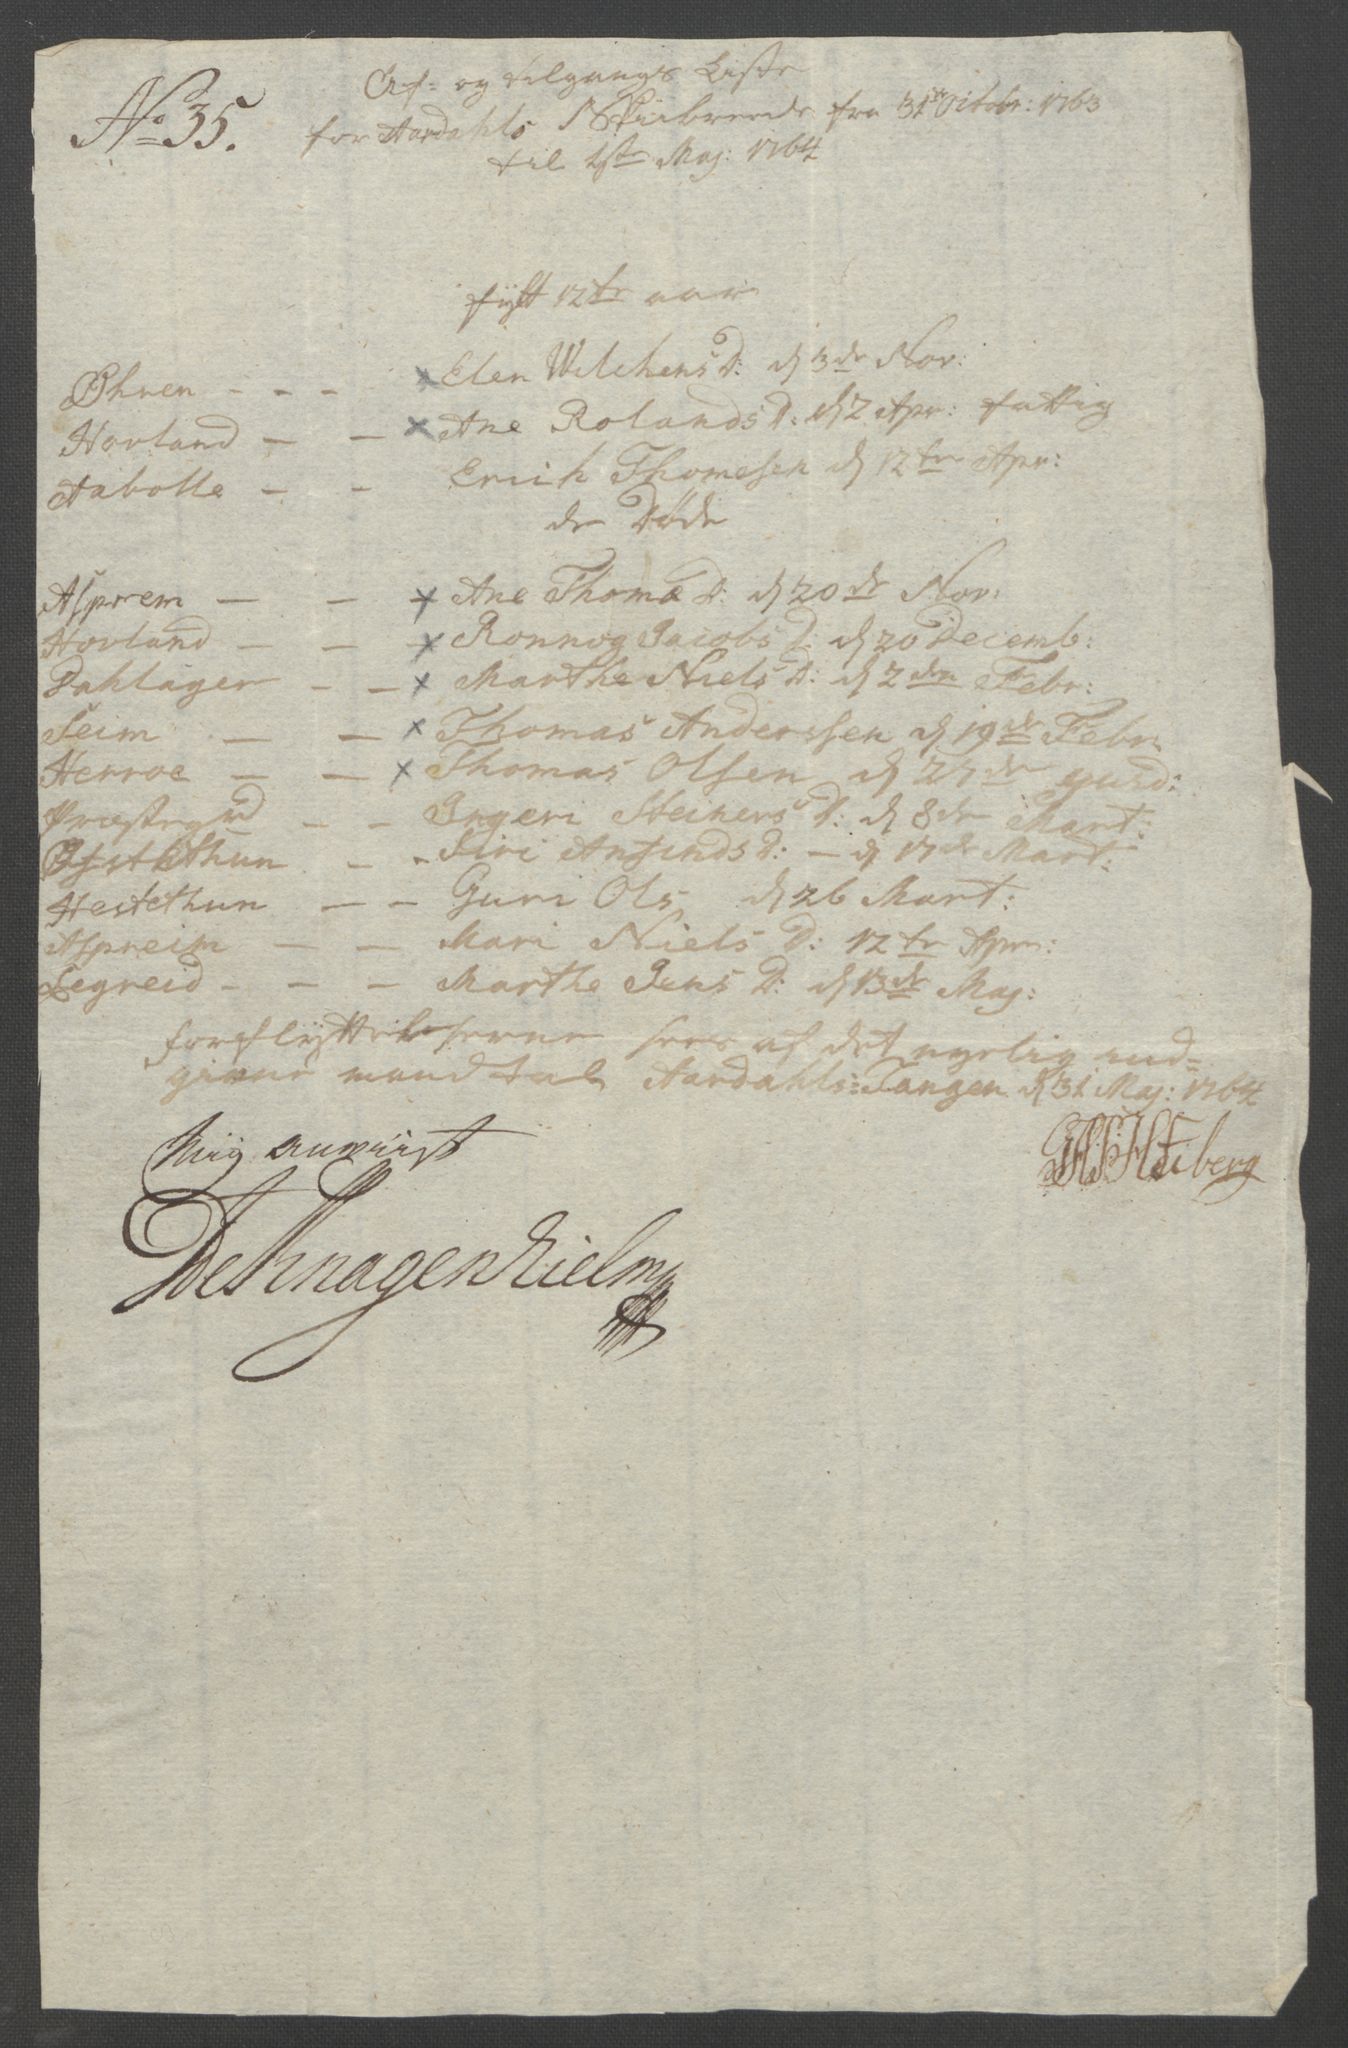 No 35.
Af- og tilgangs Liste
for Aardahls Skibrede fra 31te Octobr: 1763
til 1ste Maj: 1764
fyllt 12te aar
Øhren - - - x Elen WilchensD: d 3de Nov:
Hovland - - x Ane RolandsD: d 2 Apr: fattig
Aabolle - - Erich Thomesen d 12te Apr:
de døde
Asprem - - x Ane Thome D: d 20de Nov:
Hovland - - x Ronnog Jacobs D: d 20 Decemb:
Dahlager - - x Marthe Niels D: d 2den Febr:
Seim - - x Thomas Anderssen d 19de Febr
Herroe - - x Thomas Olsen d 27de
Præstegrd - - Ingeri Steiners D: d 8de Mart:
Hestethun - - Siri AnfindsD: - d 17de Mart:
Hestethun - - Guri Ols d 26 Mart:
Aspreim - - Mari Niels D: 12te Apr:
Legreid - - - Marthe Jens D: d 13de Maj:
forflyttelserne sees af det nyelig ud-
givne mandtal Aardahls-Tangen d 31 Maj: 1764
Heiberg
Mig anviist
De Knagenhielm